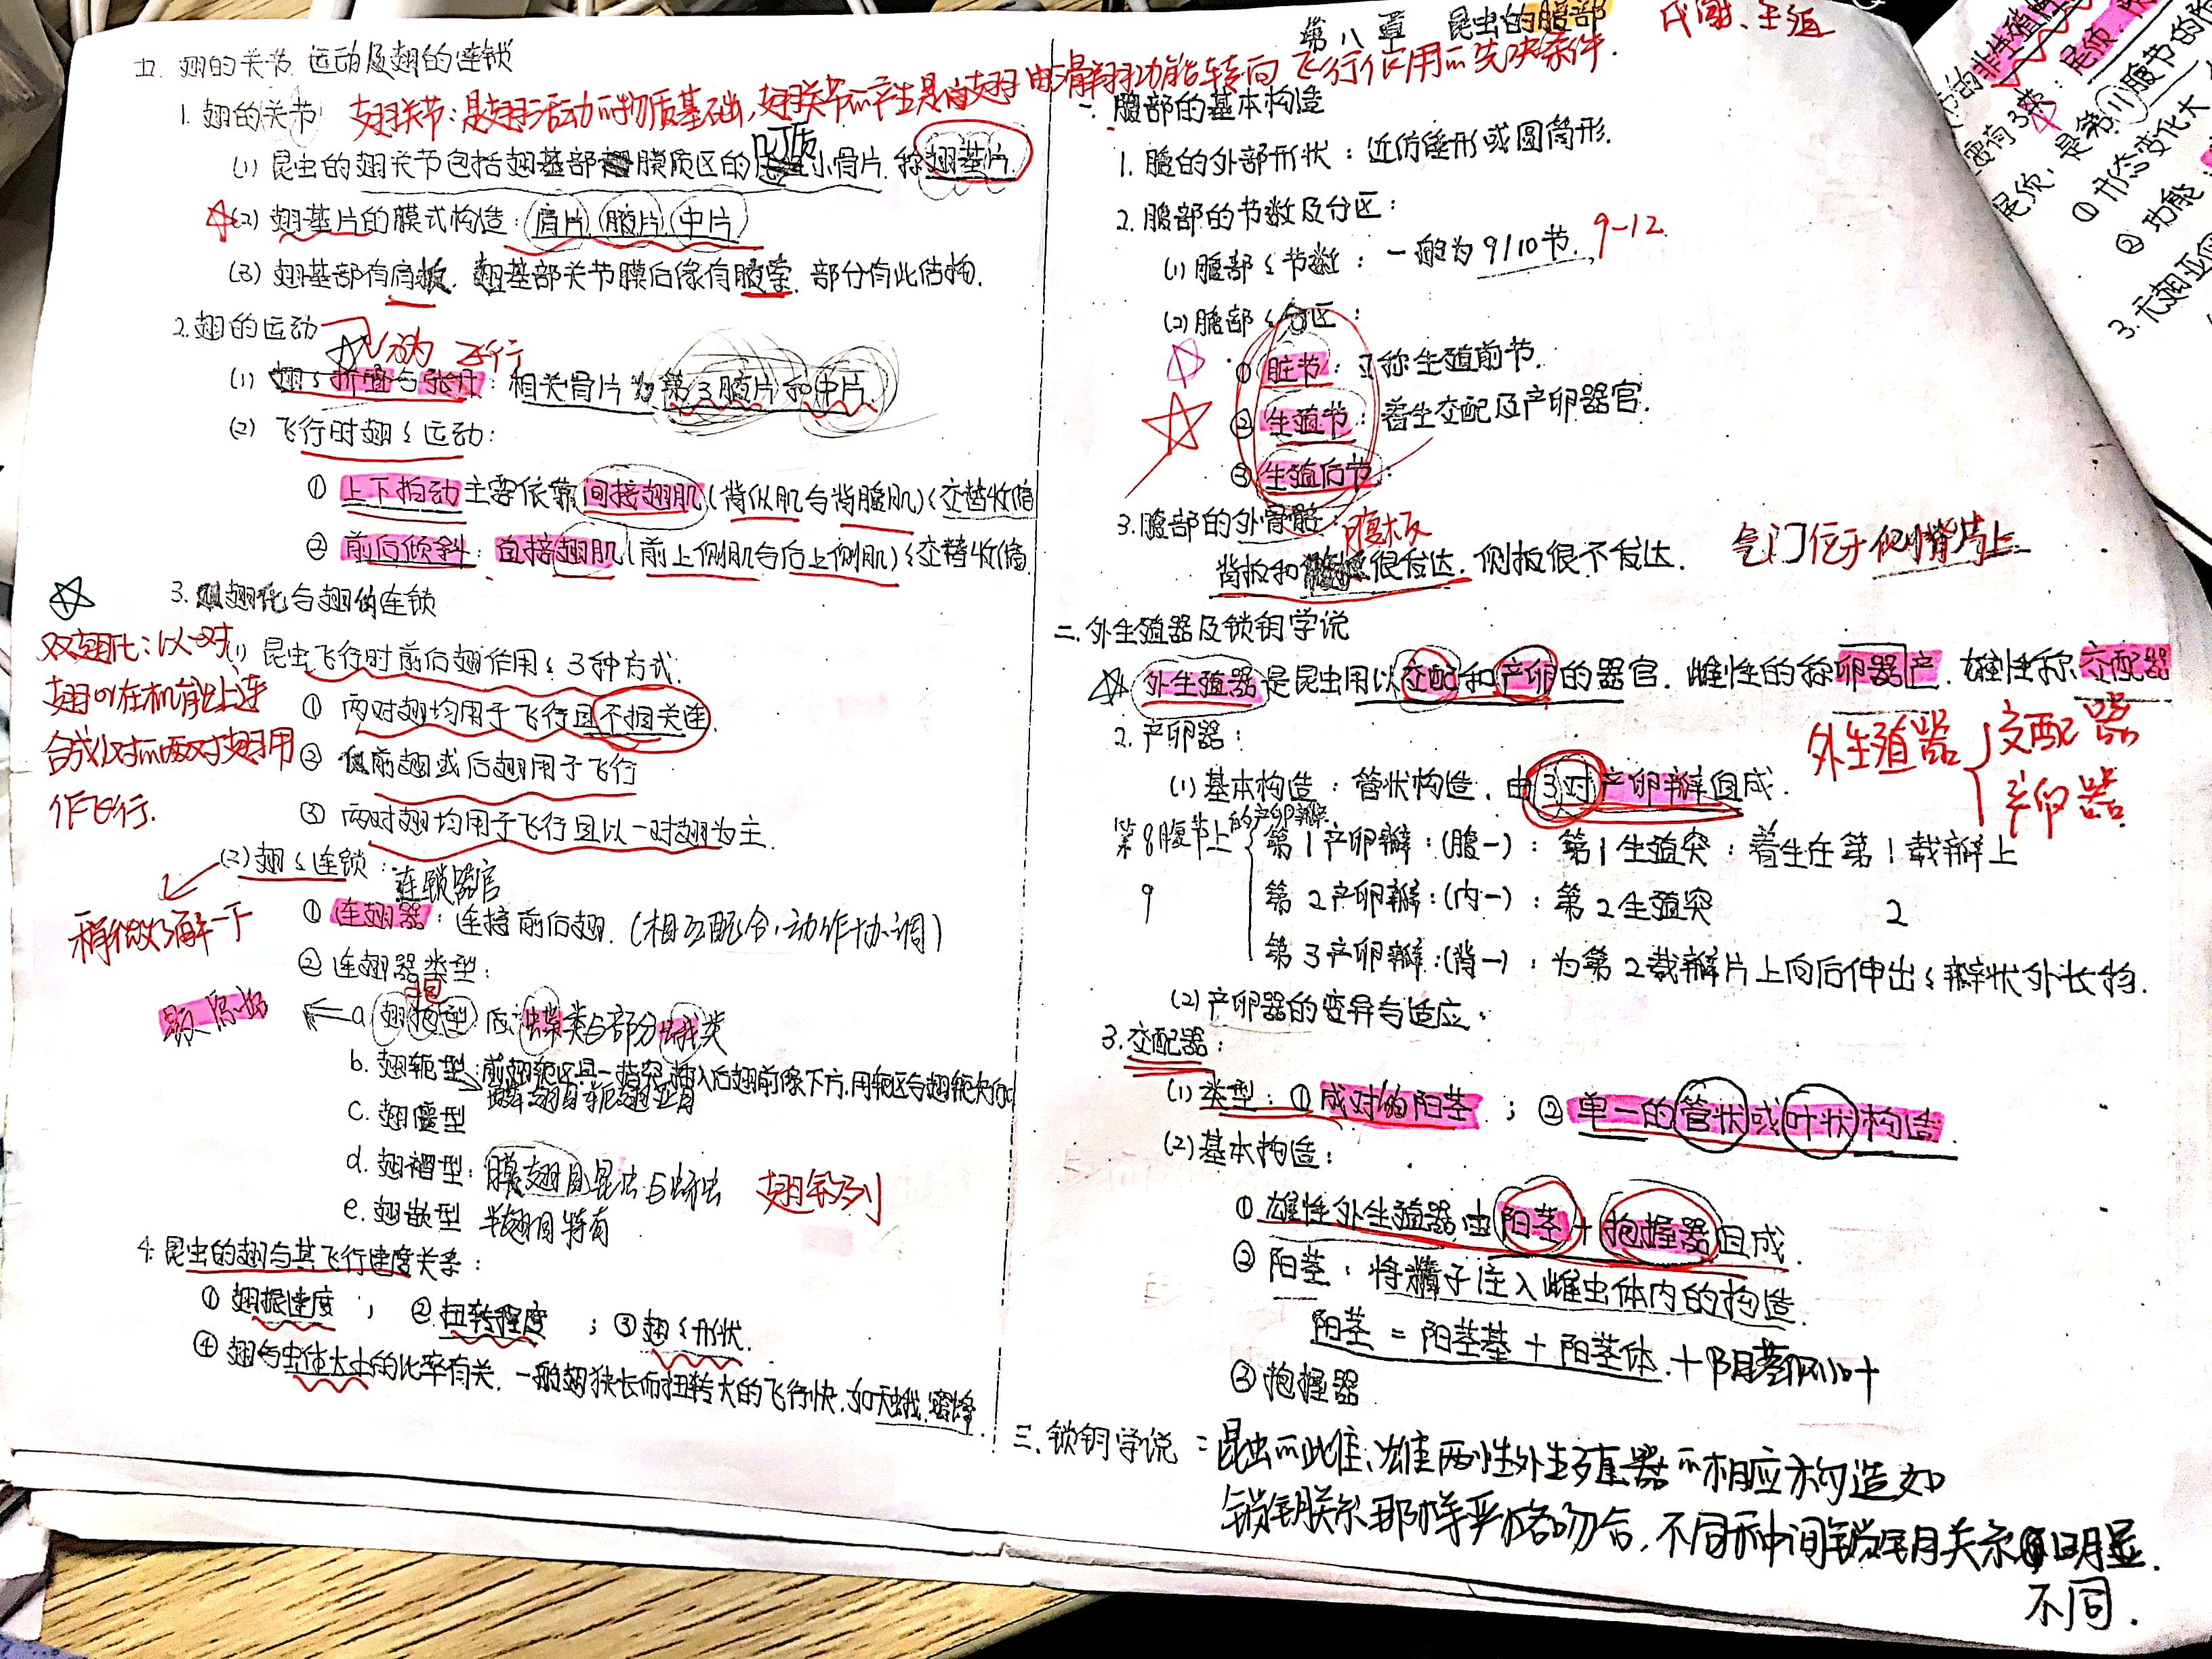 五. 翅的关节、运动及翅的连锁
1. 翅的关节
翅关节:是翅活动的物质基础,翅关节的产生是由翅由滑翔功能转向飞行作用的先决条件.
(1) 昆虫的翅关节包括翅基部膜质区的小骨片. 称翅基片.
☆(2) 翅基片的模式构造:肩片、腋片、中片
(3) 翅基部有肩板. 翅基部关节膜后缘有腋索. 部分有此结构.
2. 翅的运动
飞行
(1) 翅的折叠与张开:相关骨片为第3腋片和中片.
(2) 飞行时翅的运动:
① 上下拍动主要依靠间接翅肌(背纵肌与背腹肌)的交替收缩
② 前后倾斜:直接翅肌(前上侧肌与后上侧肌)的交替收缩.
☆ 3. 双翅化与翅的连锁
双翅化:以一对
翅或在机能上连
合成1对的两对翅用
作飞行.
(1) 昆虫飞行时前后翅作用的3种方式.
① 两对翅均用于飞行且不相关连.
② 仅前翅或后翅用于飞行
③ 两对翅均用于飞行且以一对翅为主.
(2) 翅的连锁:连锁器官
稍微了解一下
① 连翅器:连接前后翅.(相互配合,动作协调)
② 连翅器类型:
a. 翅抱型:蝶类与部分蛾类
b. 翅轭型:前翅轭区具一指突,插入后翅前缘下方,用轭区与翅轭夹住
c. 翅缰型
d. 翅褶型:膜翅目昆虫与蚜虫 翅钩列
e. 翅嵌型 半翅目特有
4. 昆虫的翅与其飞行速度关系:
① 翅振速度; ② 扭转程度; ③ 翅的形状.
④ 翅与虫体大小的比率有关. 一般翅狭长而扭转大的飞行快.如天蛾.蜜蜂.
第八章 昆虫的腹部 代谢、生殖
一、腹部的基本构造
1. 腹的外部形状:近纺锤形或圆筒形.
2. 腹部的节数及分区:
(1) 腹部的节数:一般为9/10节. 9-12
(2) 腹部的分区:
① 脏节:又称生殖前节.
② 生殖节:着生交配及产卵器官.
③ 生殖后节:
3. 腹部的外骨骼:
背板和腹板很发达. 侧板很不发达. 气门位于侧背片上
二. 外生殖器及锁钥学说
☆1. 外生殖器是昆虫用以交配和产卵的器官. 雌性的称卵器产. 雄性称交配器
外生殖器{交配器
产卵器
2. 产卵器:
(1) 基本构造:管状构造. 由3对产卵瓣组成.
第8腹节上的产卵瓣 第1产卵瓣:(腹一):第1生殖突:着生在第1载瓣上
9 第2产卵瓣:(内一):第2生殖突 2
第3产卵瓣:(背一):为第2载瓣片上向后伸出的瓣状外长物.
(2) 产卵器的变异与适应.
3. 交配器:
(1) 类型:① 成对的阳茎; ② 单一的管状或叶状构造.
(2) 基本构造:
① 雄性外生殖器由阳茎+抱握器组成.
② 阳茎:将精子注入雌虫体内的构造.
阳茎=阳茎基+阳茎体.+阳茎侧叶
③ 抱握器
三. 锁钥学说:昆虫的雌、雄两性外生殖器的相应构造如
锁钥关系那样严格吻合,不同种间锁钥关系明显
不同.
3类:尾须
尾须:是第11腹节的
① 形态变化大
② 功能
3. 无翅亚